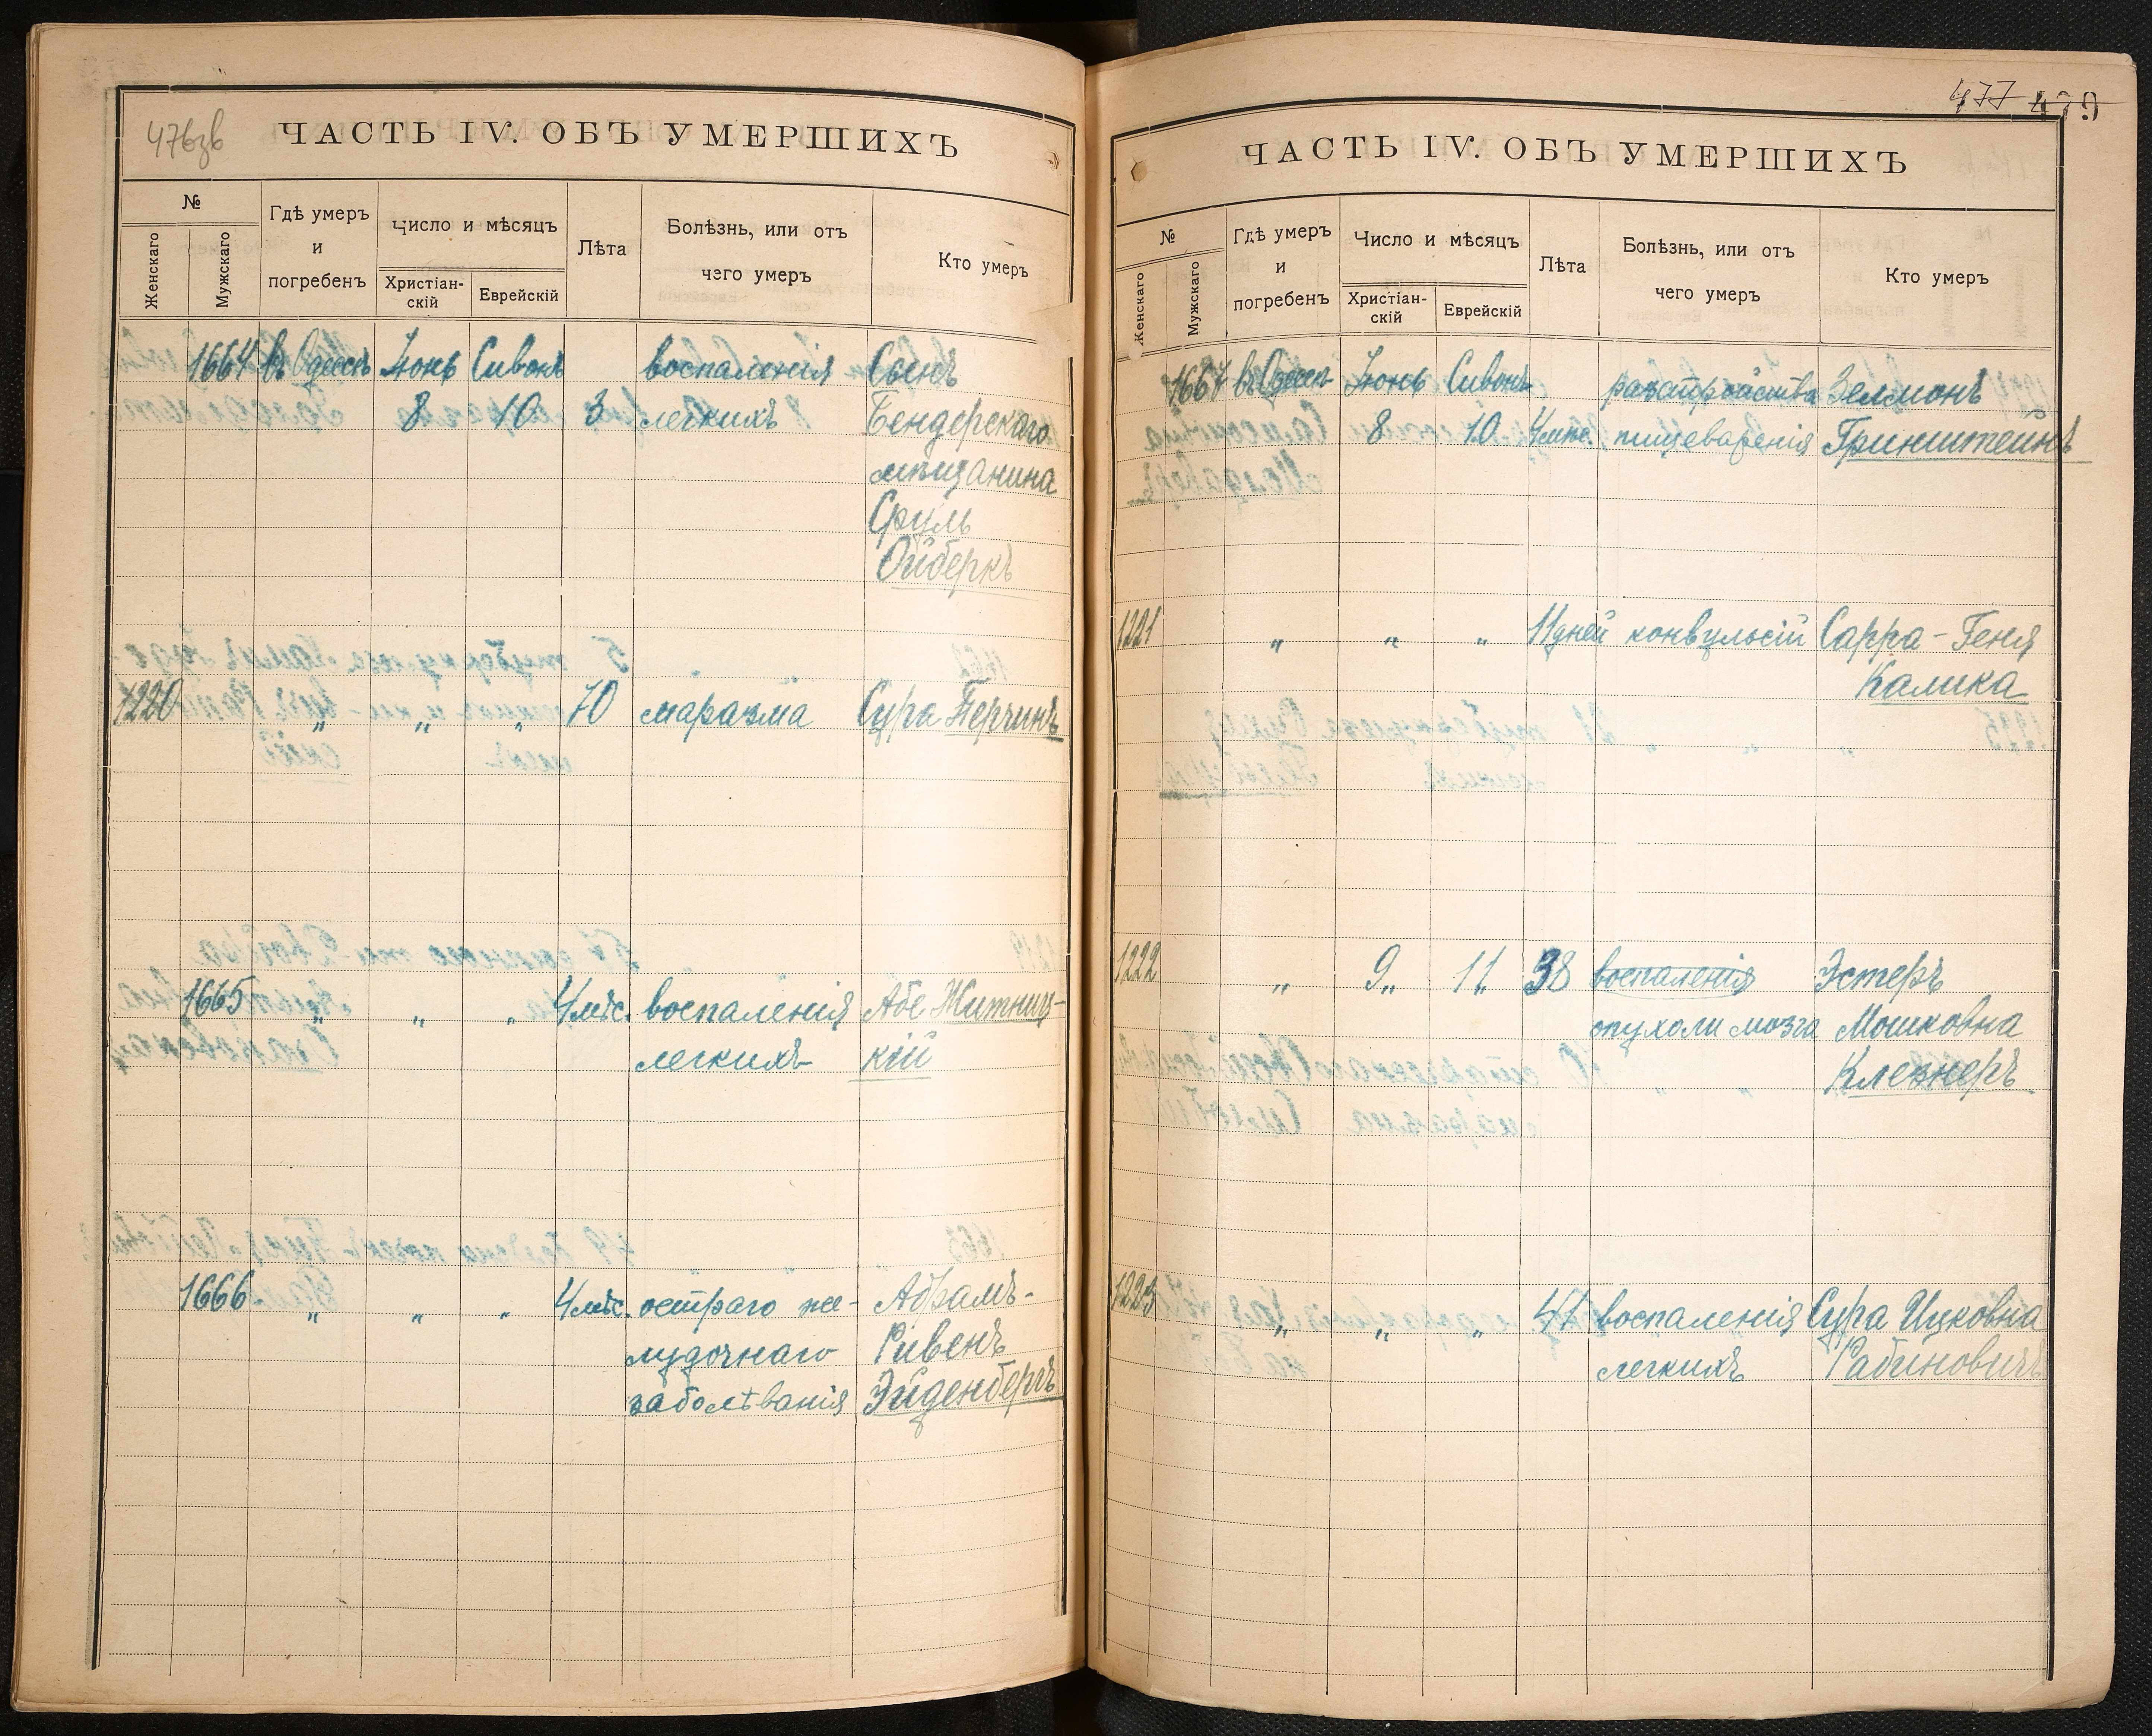 476зв
ЧАСТЬ IV. ОБЪ УМЕРШИХЪ
№
Женскаго
Мужскаго
Гдѣ умеръ
и
погребенъ
Число и мѣсяцъ
Христіан-
скій
Еврейскій
Лѣта
Болѣзнь, или отъ
чего умеръ
Кто умеръ
1664 въ Одессѣ Іюнь Сивонъ воспаленія Сынъ
8 10 3 легкихъ Бендерскаго
мѣщанина
Сруль
Ойберкъ
1220 „ „ „ 70 маразма Сура Перчинъ
1665 „ „ „ 4 мѣс. воспаленія Абе Житниц-
легкихъ кій
1666 „ „ „ 4 мѣс. остраго же- Абрамъ-
лудочнаго Рувенъ
заболѣванія Эйденбергъ
477 479
ЧАСТЬ IV. ОБЪ УМЕРШИХЪ
№
Женскаго
Мужскаго
Гдѣ умеръ
и
погребенъ
Число и мѣсяцъ
Христіан-
скій
Еврейскій
Лѣта
Болѣзнь, или отъ
чего умеръ
Кто умеръ
1667 въ Одессѣ Іюнь Сивонъ разстройства Зелмонъ
8 10 4 мѣс. пищеваренія Гринштейнъ
1221 „ „ „ 11 дней конвульсій Сарра-Геня
Калика
1222 „ 9„ 11 38 воспаленія Эстеръ
опухоли мозга Мошковна
Клезнеръ
1223 „ „ „ 47 воспаленія Сура Ицковна
легкихъ Рабиновичъ